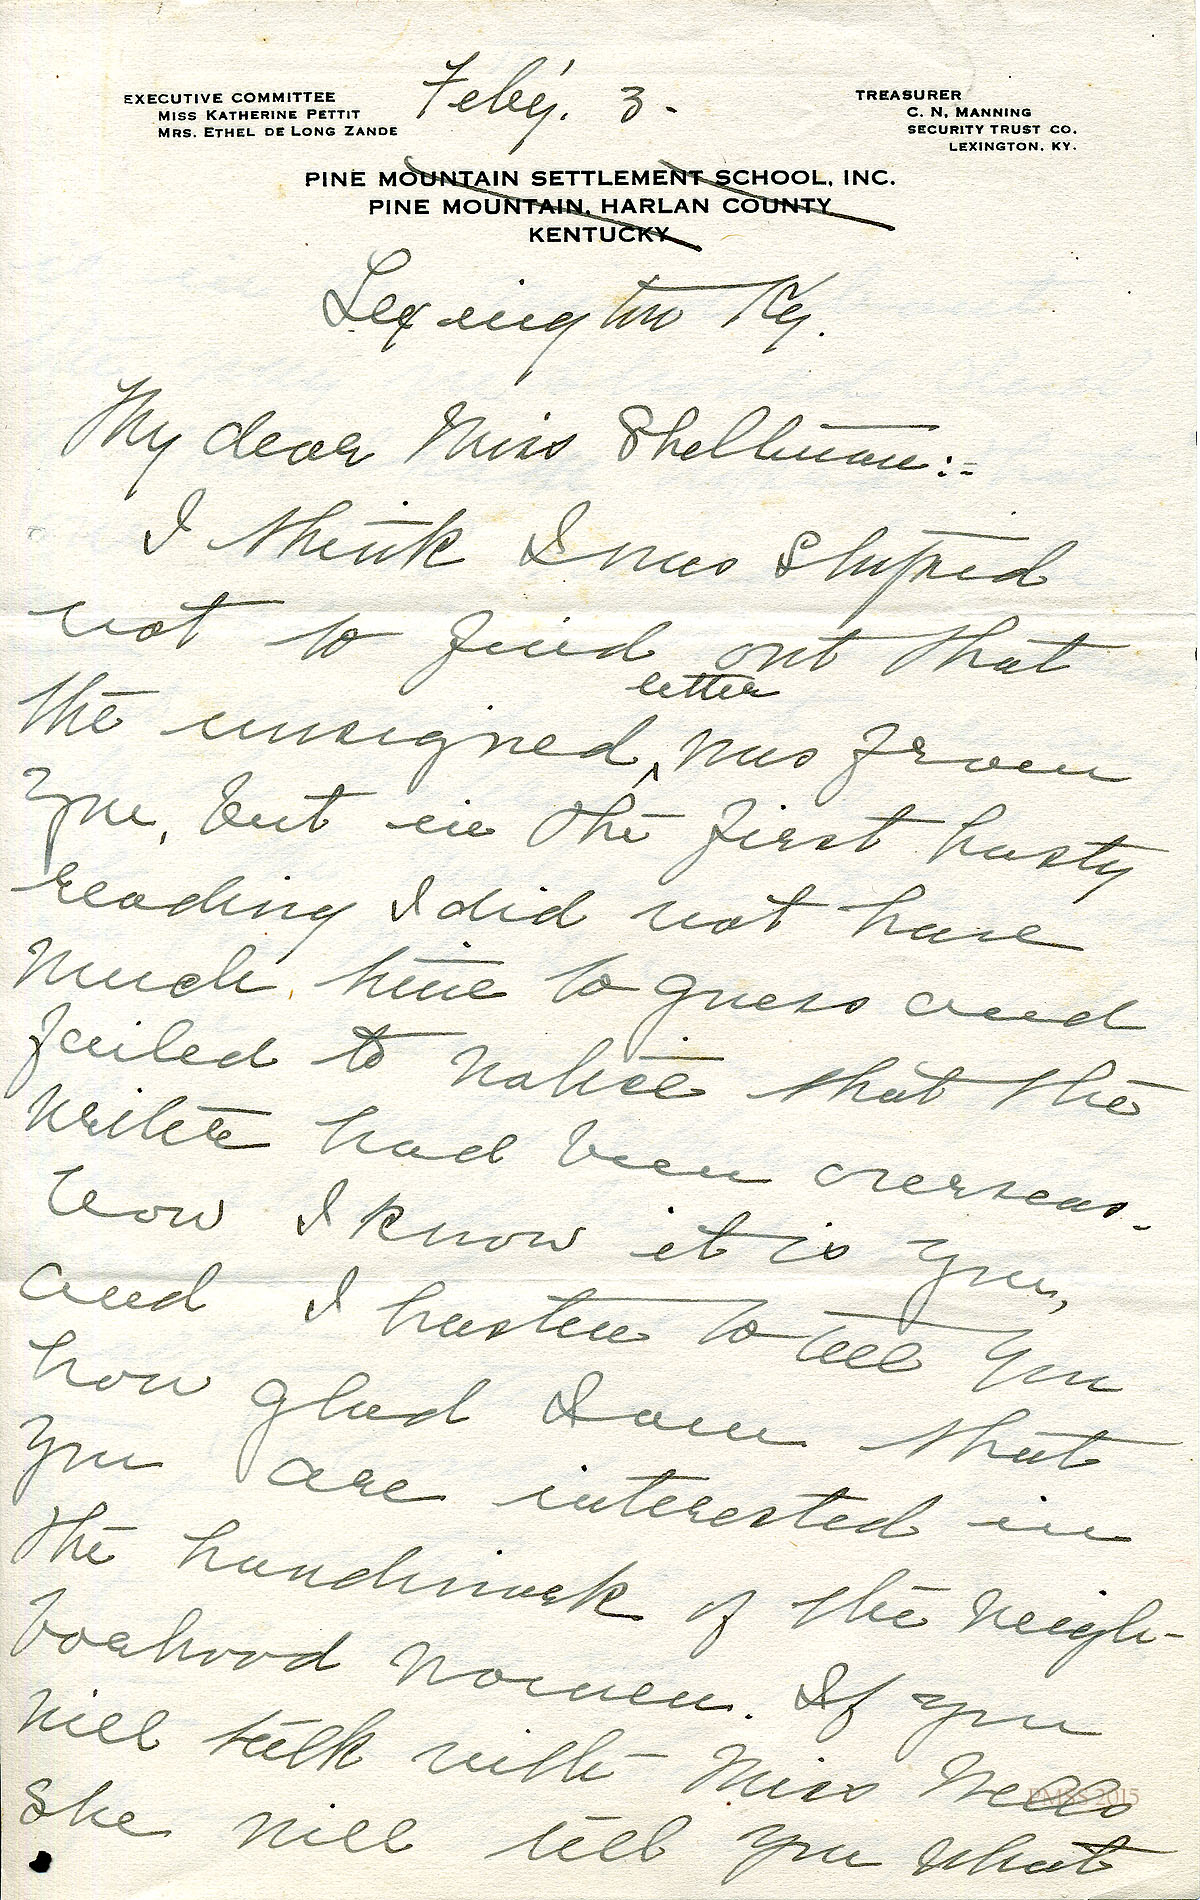 Feb'y. 3.
EXECUTIVE COMMITTEE
MISS KATHERINE PETTIT
MRS. ETHEL DE LONG ZANDE
TREASURER
C. N. MANNING
SECURITY TRUST CO.
LEXINGTON, KY.
PINE MOUNTAIN SETTLEMENT SCHOOL, INC.
PINE MOUNTAIN, HARLAN COUNTY
KENTUCKY
Lexington Ky.
My dear Miss
I think I was stupid
not to find out that
the unsigned letter was from
you, but in the first hasty
reading I did not have
much time to guess and
failed to notice that the
writer had been overseas.
Now I know it is you,
and I hasten to tell you
how glad I am that
you are interested in
the handiwork of the neigh-
borhood women. If you
will talk with Miss Wells
she will tell you what
PMSS 2015